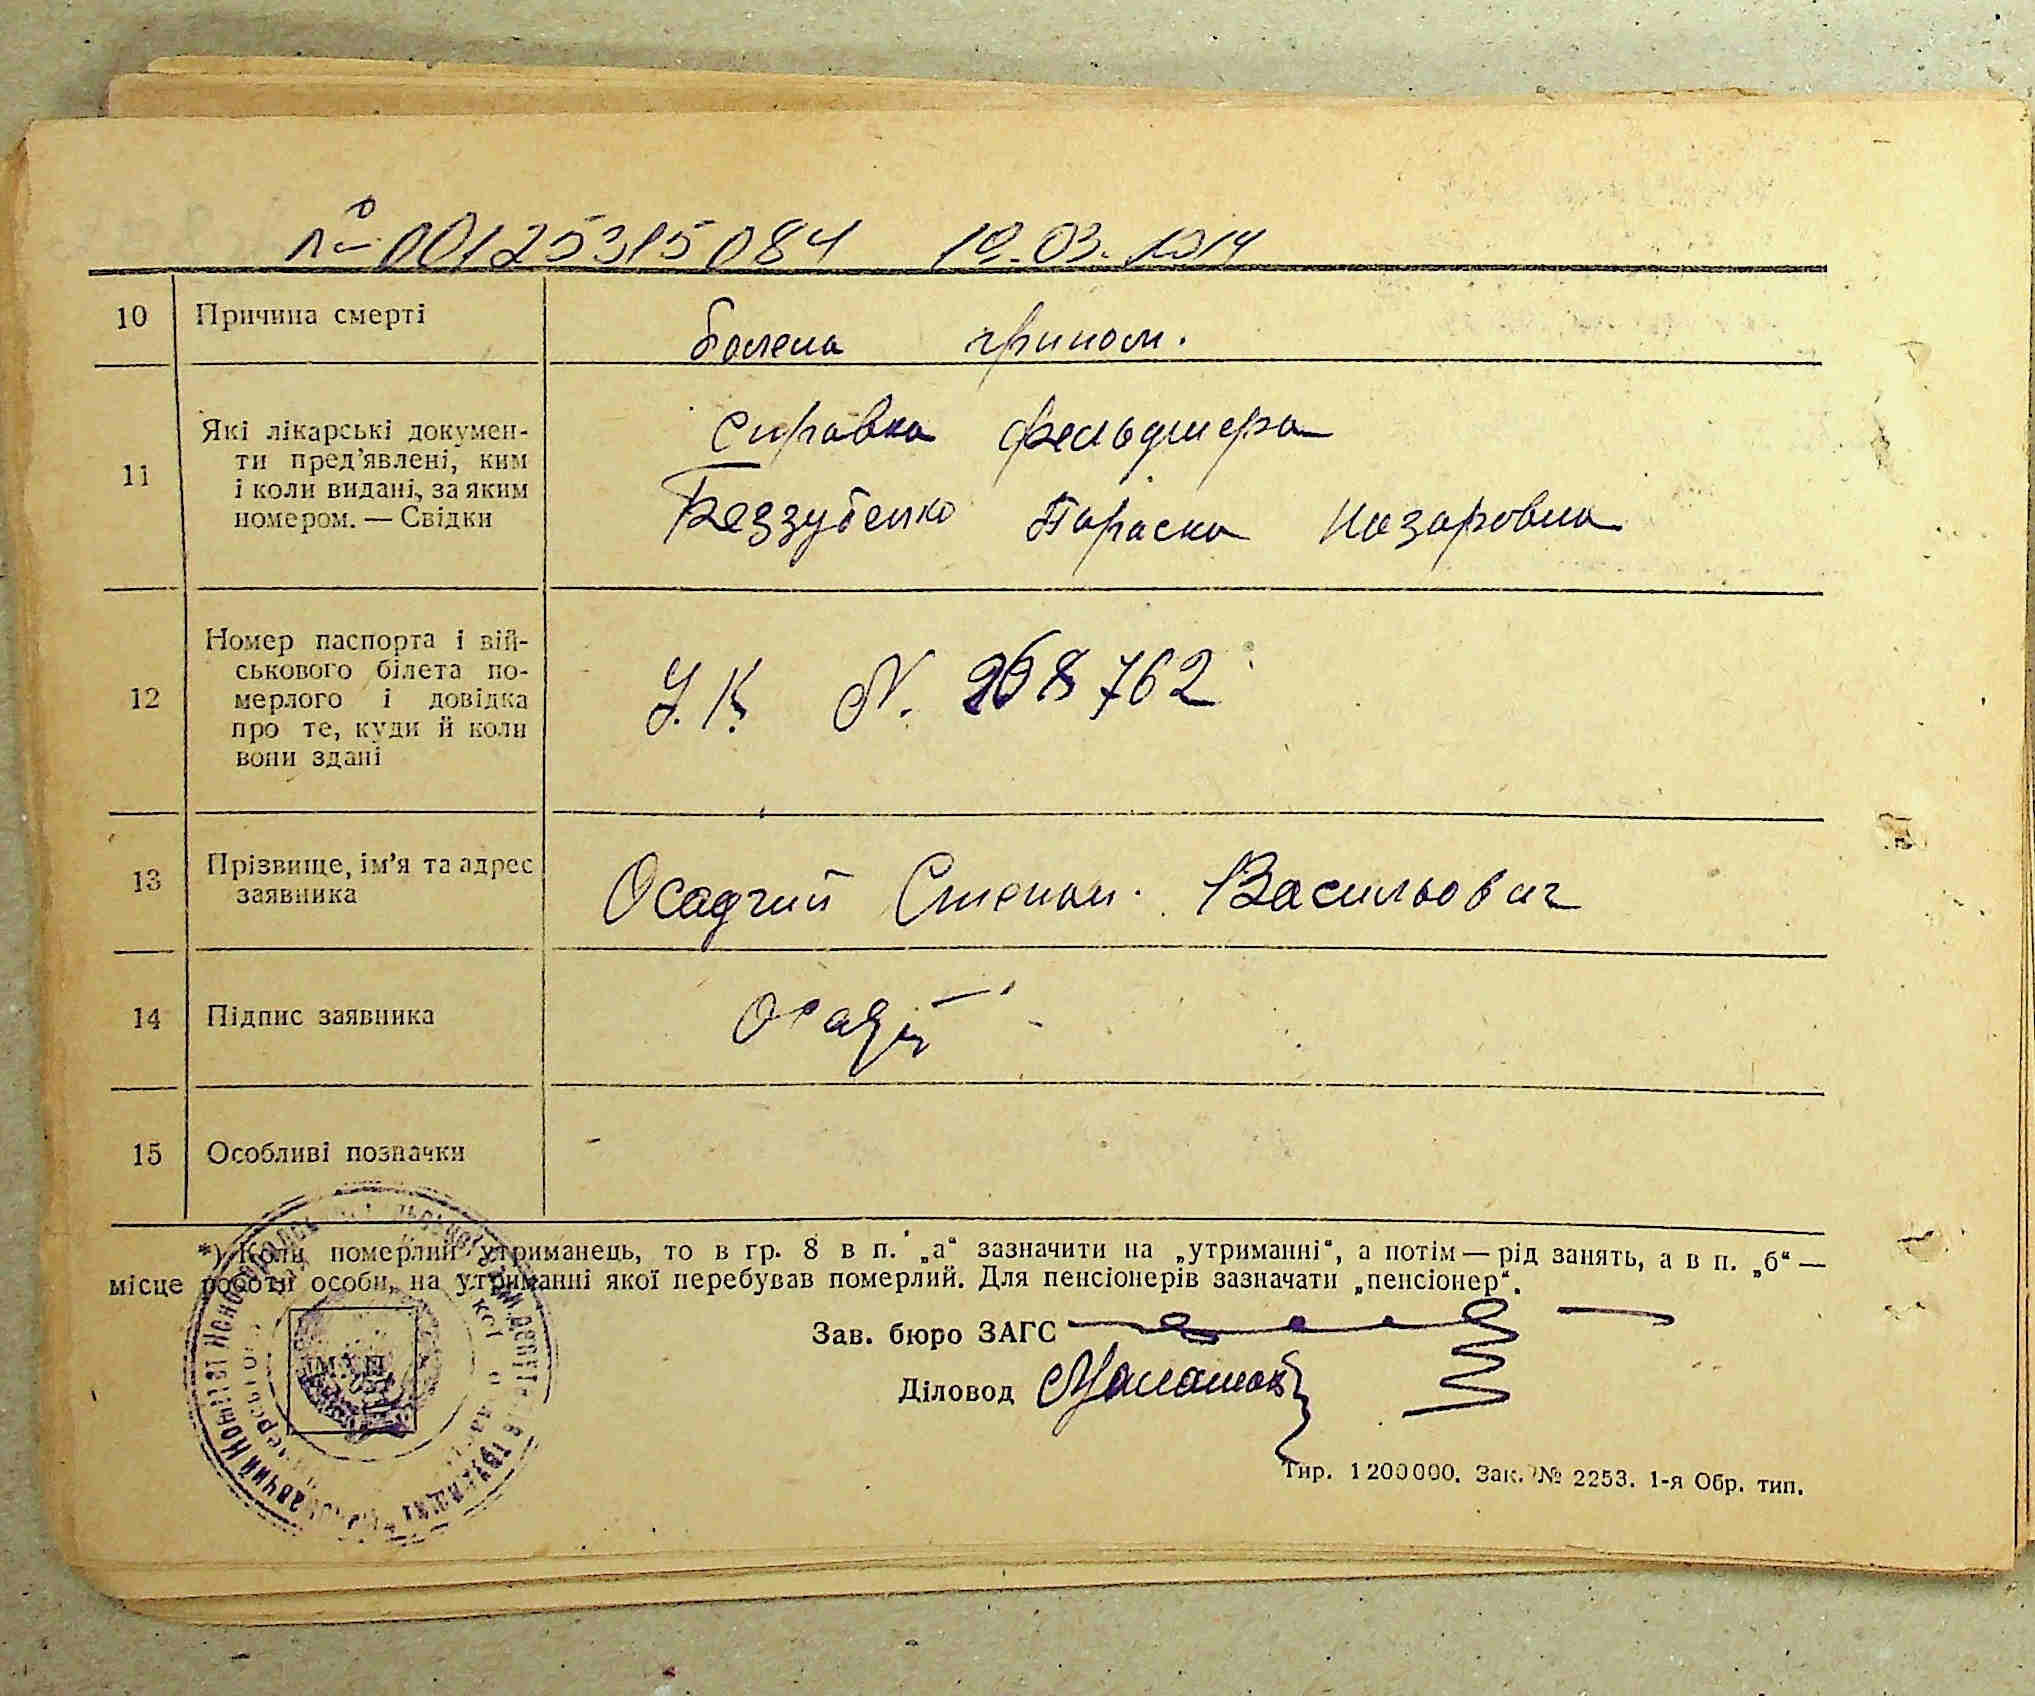 № 00125315084 19.03.2014
10 Причина смерті
болела грипом.
11 Які лікарські докумен-
ти пред'явлені, ким
і коли видані, за яким
номером. — Свідки
Справка фельдшера
Беззубенко Параска Назаровна
12 Номер паспорта і вій-
ськового білета по-
мерлого і довідка
про те, куди й коли
вони здані
У. К. N. 268762
13 Прізвище, ім'я та адрес
заявника
Осадчий Степан. Васильович
14 Підпис заявника
15 Особливі позначки
*) Коли померлий утриманець, то в гр. 8 в п. „а“ зазначити на „утриманні“, а потім — рід занять, а в п. „б“ —
місце роботи особи, на утриманні якої перебував померлий. Для пенсіонерів зазначати „пенсіонер“.
Зав. бюро ЗАГС
Діловод
М. П.
Тир. 1 200 000. Зак. № 2253. 1-я Обр. тип.